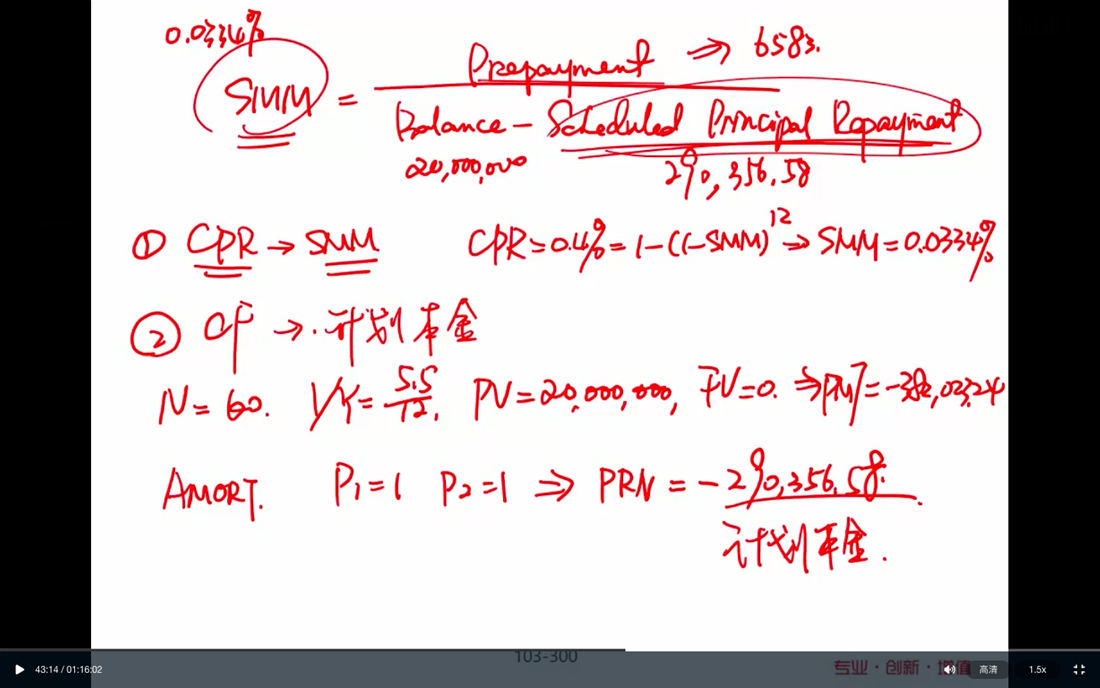 0.0334%
SMM = Prepayment ⇒ 6583.
Balance - Scheduled Principal Repayment
20,000,000 290,356.58
① CPR → SMM CPR = 0.4% = 1-(1-SMM)^12 → SMM = 0.0334%
② CF → 计划本金
N = 60. I/Y = 5.5/12, PV = 20,000,000, FV = 0. ⇒ PMT = -382,023.24
AMORT. P1 = 1 P2 = 1 ⇒ PRN = -290,356.58.
计划本金.
103-300
专业·创新·增值
43:14 / 01:16:02 高清 1.5x